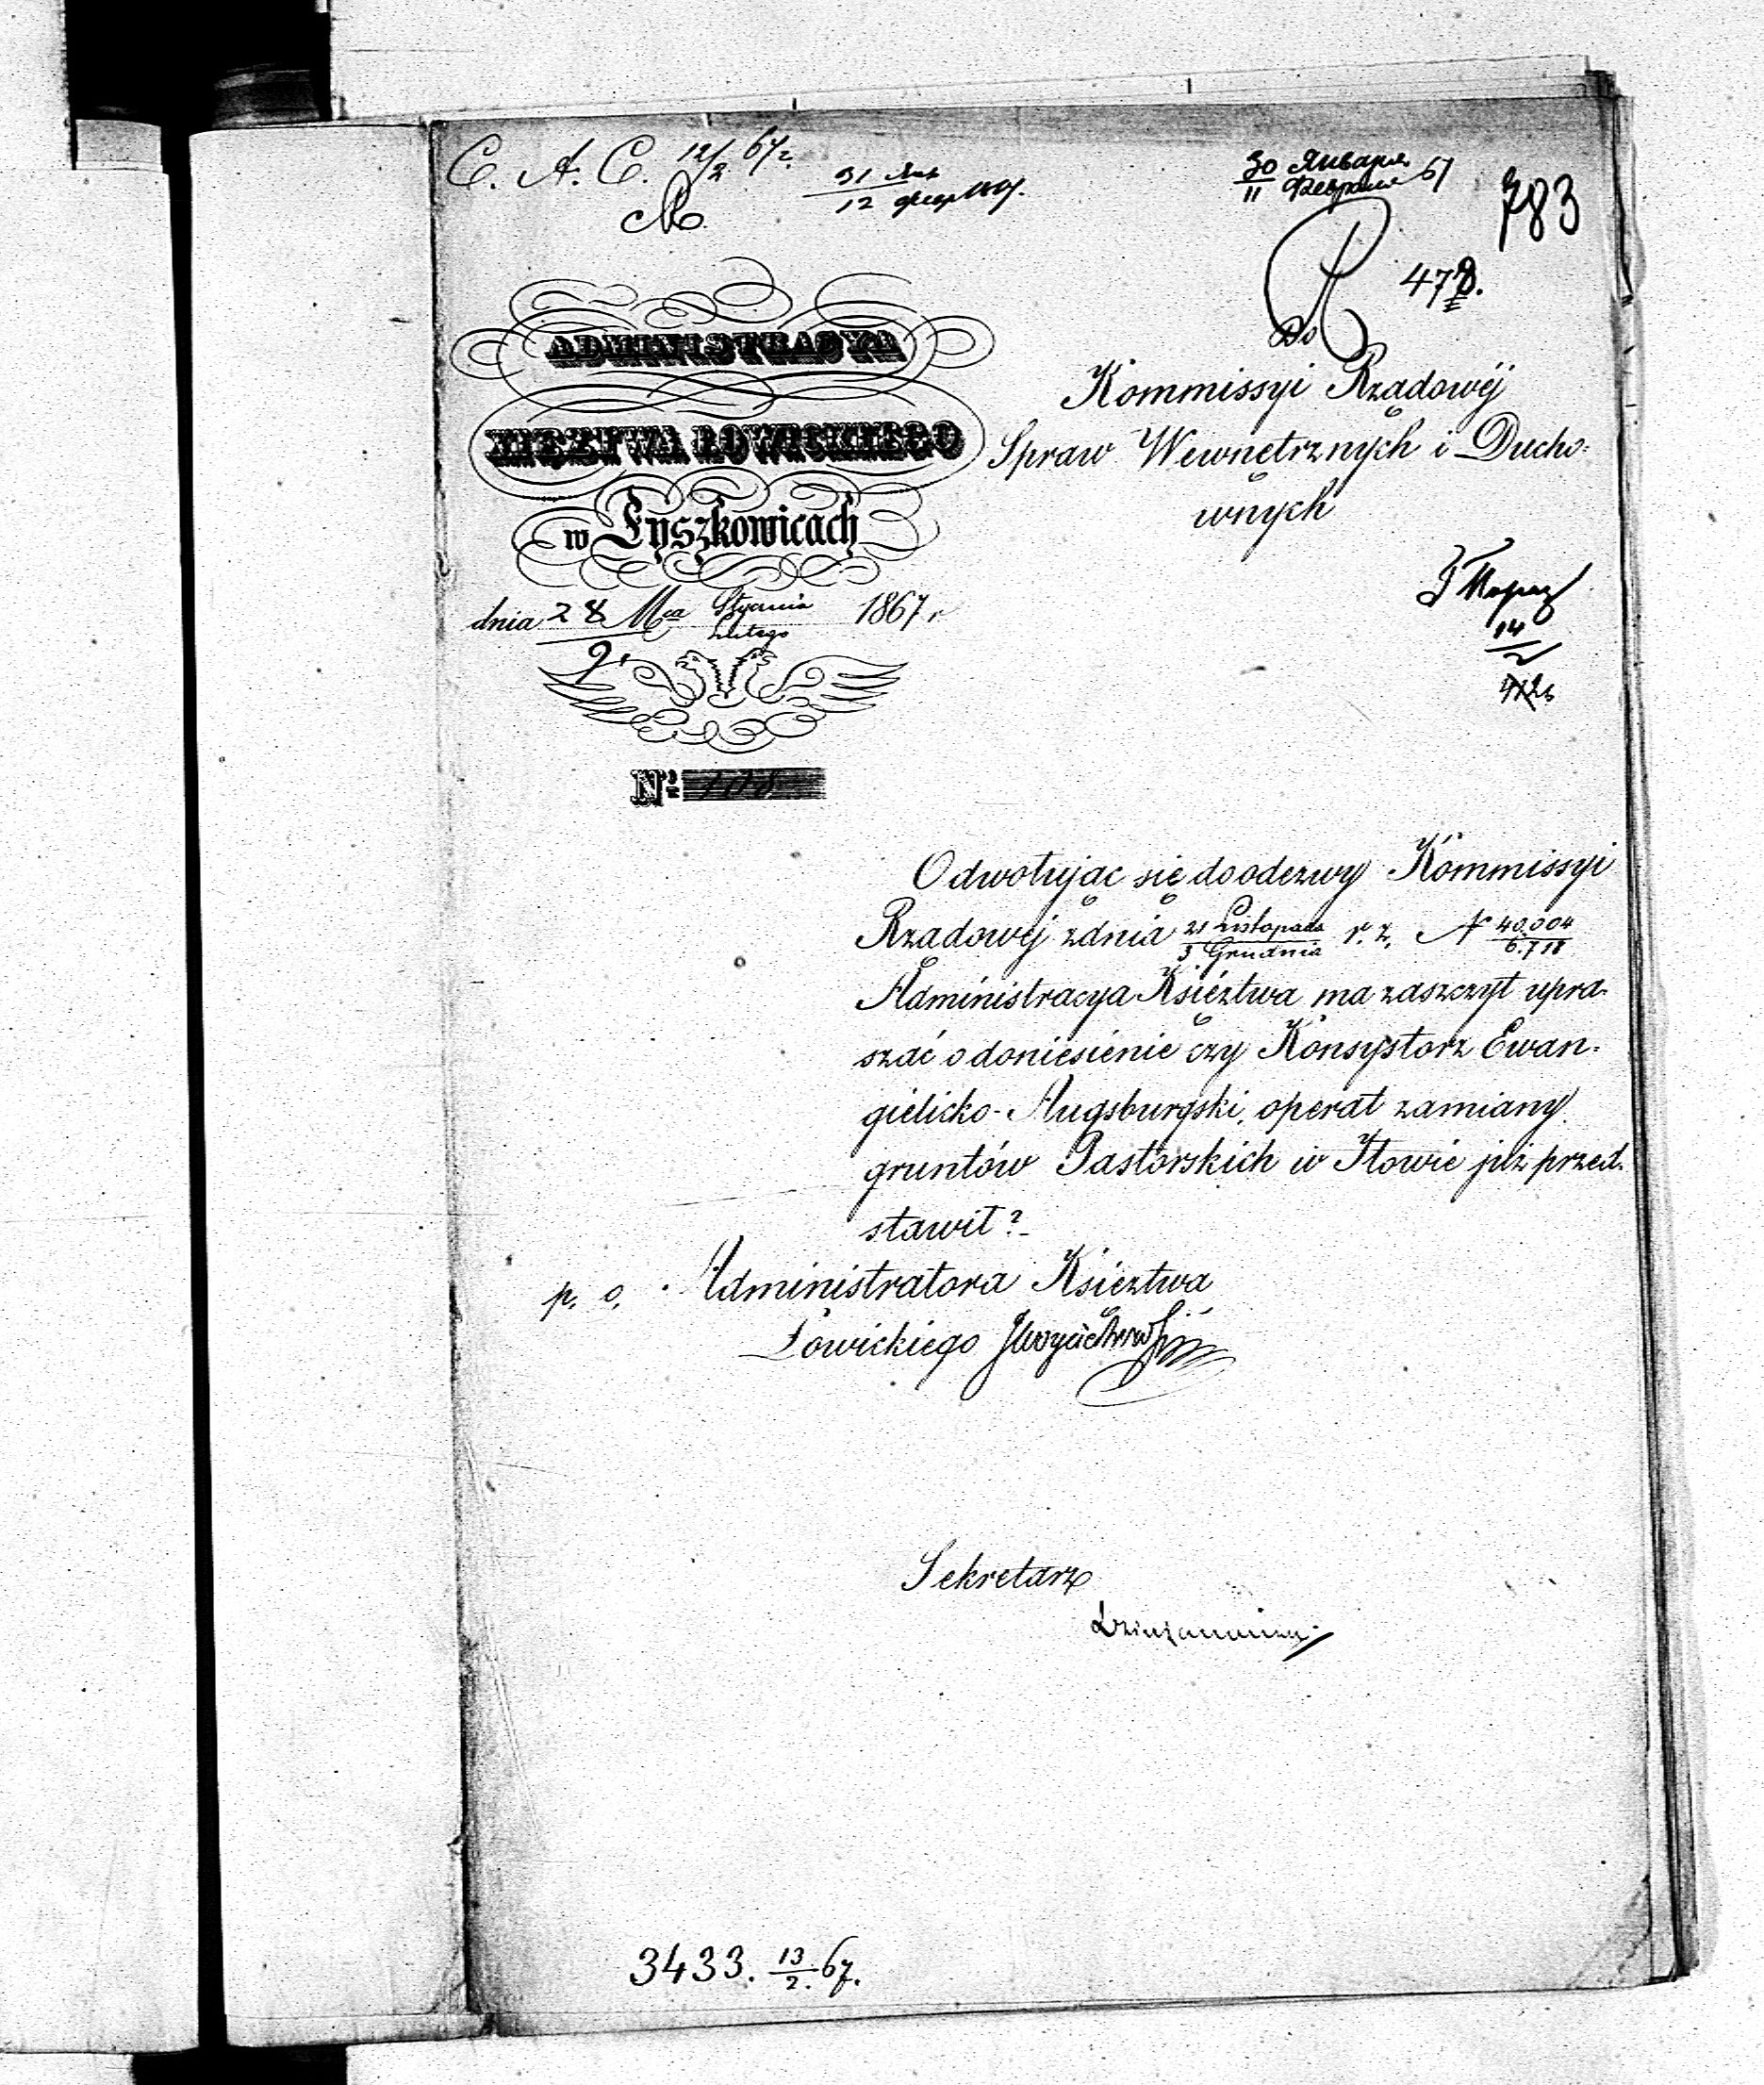 C. A. C. 12/2 67 r.
31 Янв
12 февр 1867.
30 Января
11 Февраля 67
783
478.
ADMINISTRACYA
XIĘZTWA ŁOWICKIEGO
w Łyszkowicach
dnia 28 Mca Stycznia 1867 r
9. Lutego
Nr 108
Do
Kommissyi Rządowéj
Spraw Wewnętrznych i Ducho-
wnych
14
2
Odwołując się do odezwy Kommissyi
Rządowéj z dnia 21 Listopada r. z. N 40,004
3 Grudnia 6.718
Administracya Księztwa ma zaszczyt upra-
szać o doniesienie czy Konsystorz Ewan-
gielicko-Augsburgski, operat zamiany
gruntów Pastorskich w Iłowie już przed-
stawił?
p. o. Administratora Księztwa
Łowickiego
Sekretarz
3433. 13/2. 67.